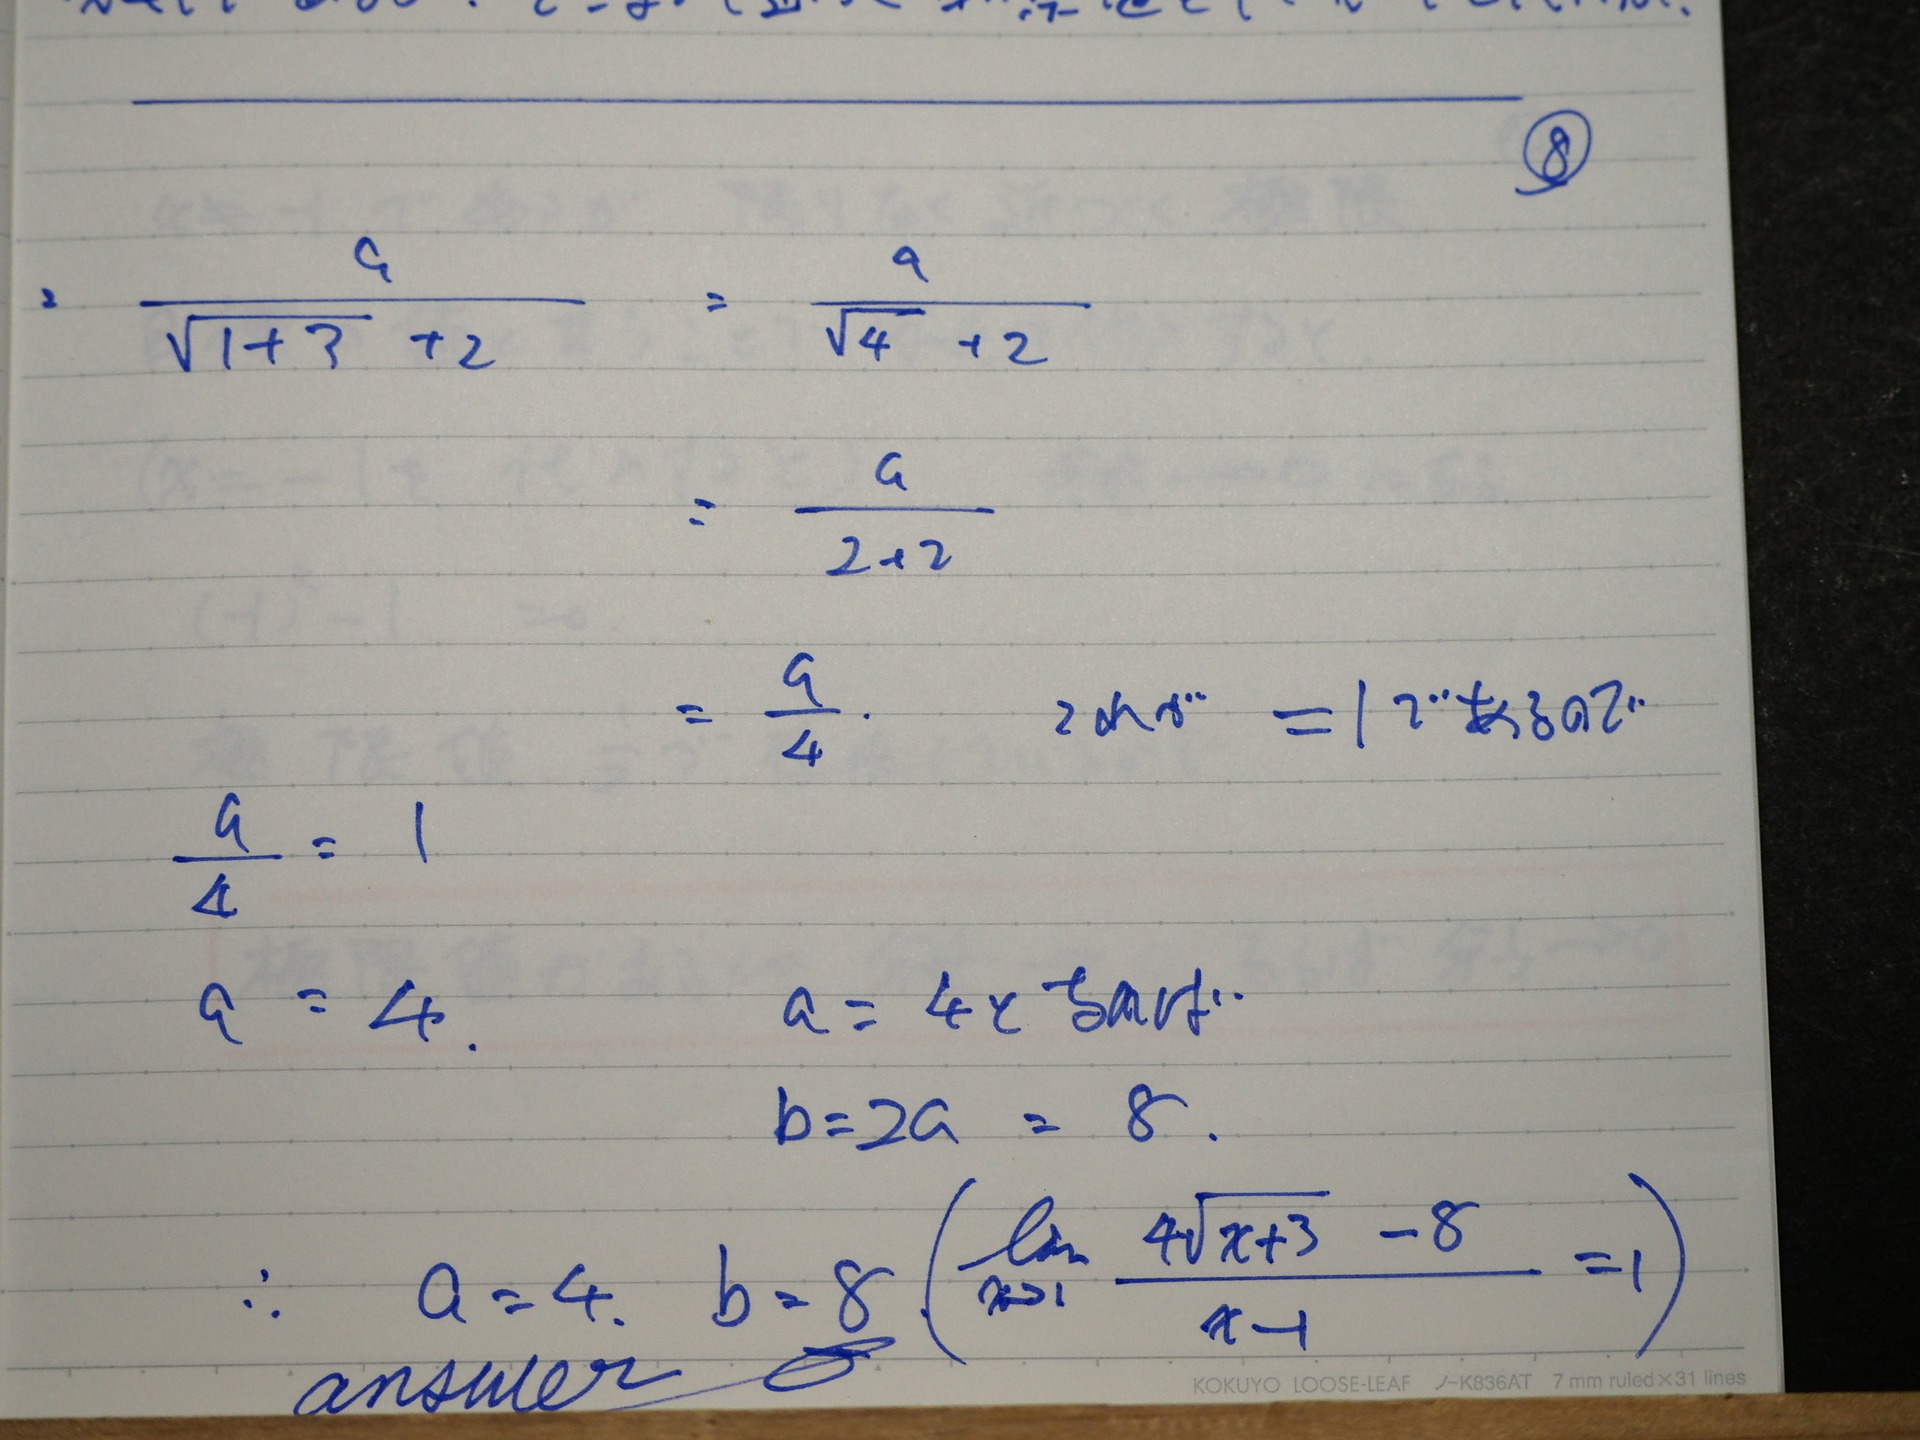 ⑧
= a/(√(1+3) +2) = a/(√4 +2)
= a/(2+2)
= a/4. これが =1であるので
a/4 = 1
a = 4. a=4とするので
b=2a = 8.
∴ a=4. b=8 (lim x→1 (4√(x+3) -8)/(x-1) =1)
answer
KOKUYO LOOSE-LEAF ノ-K836AT 7 mm ruled×31 lines